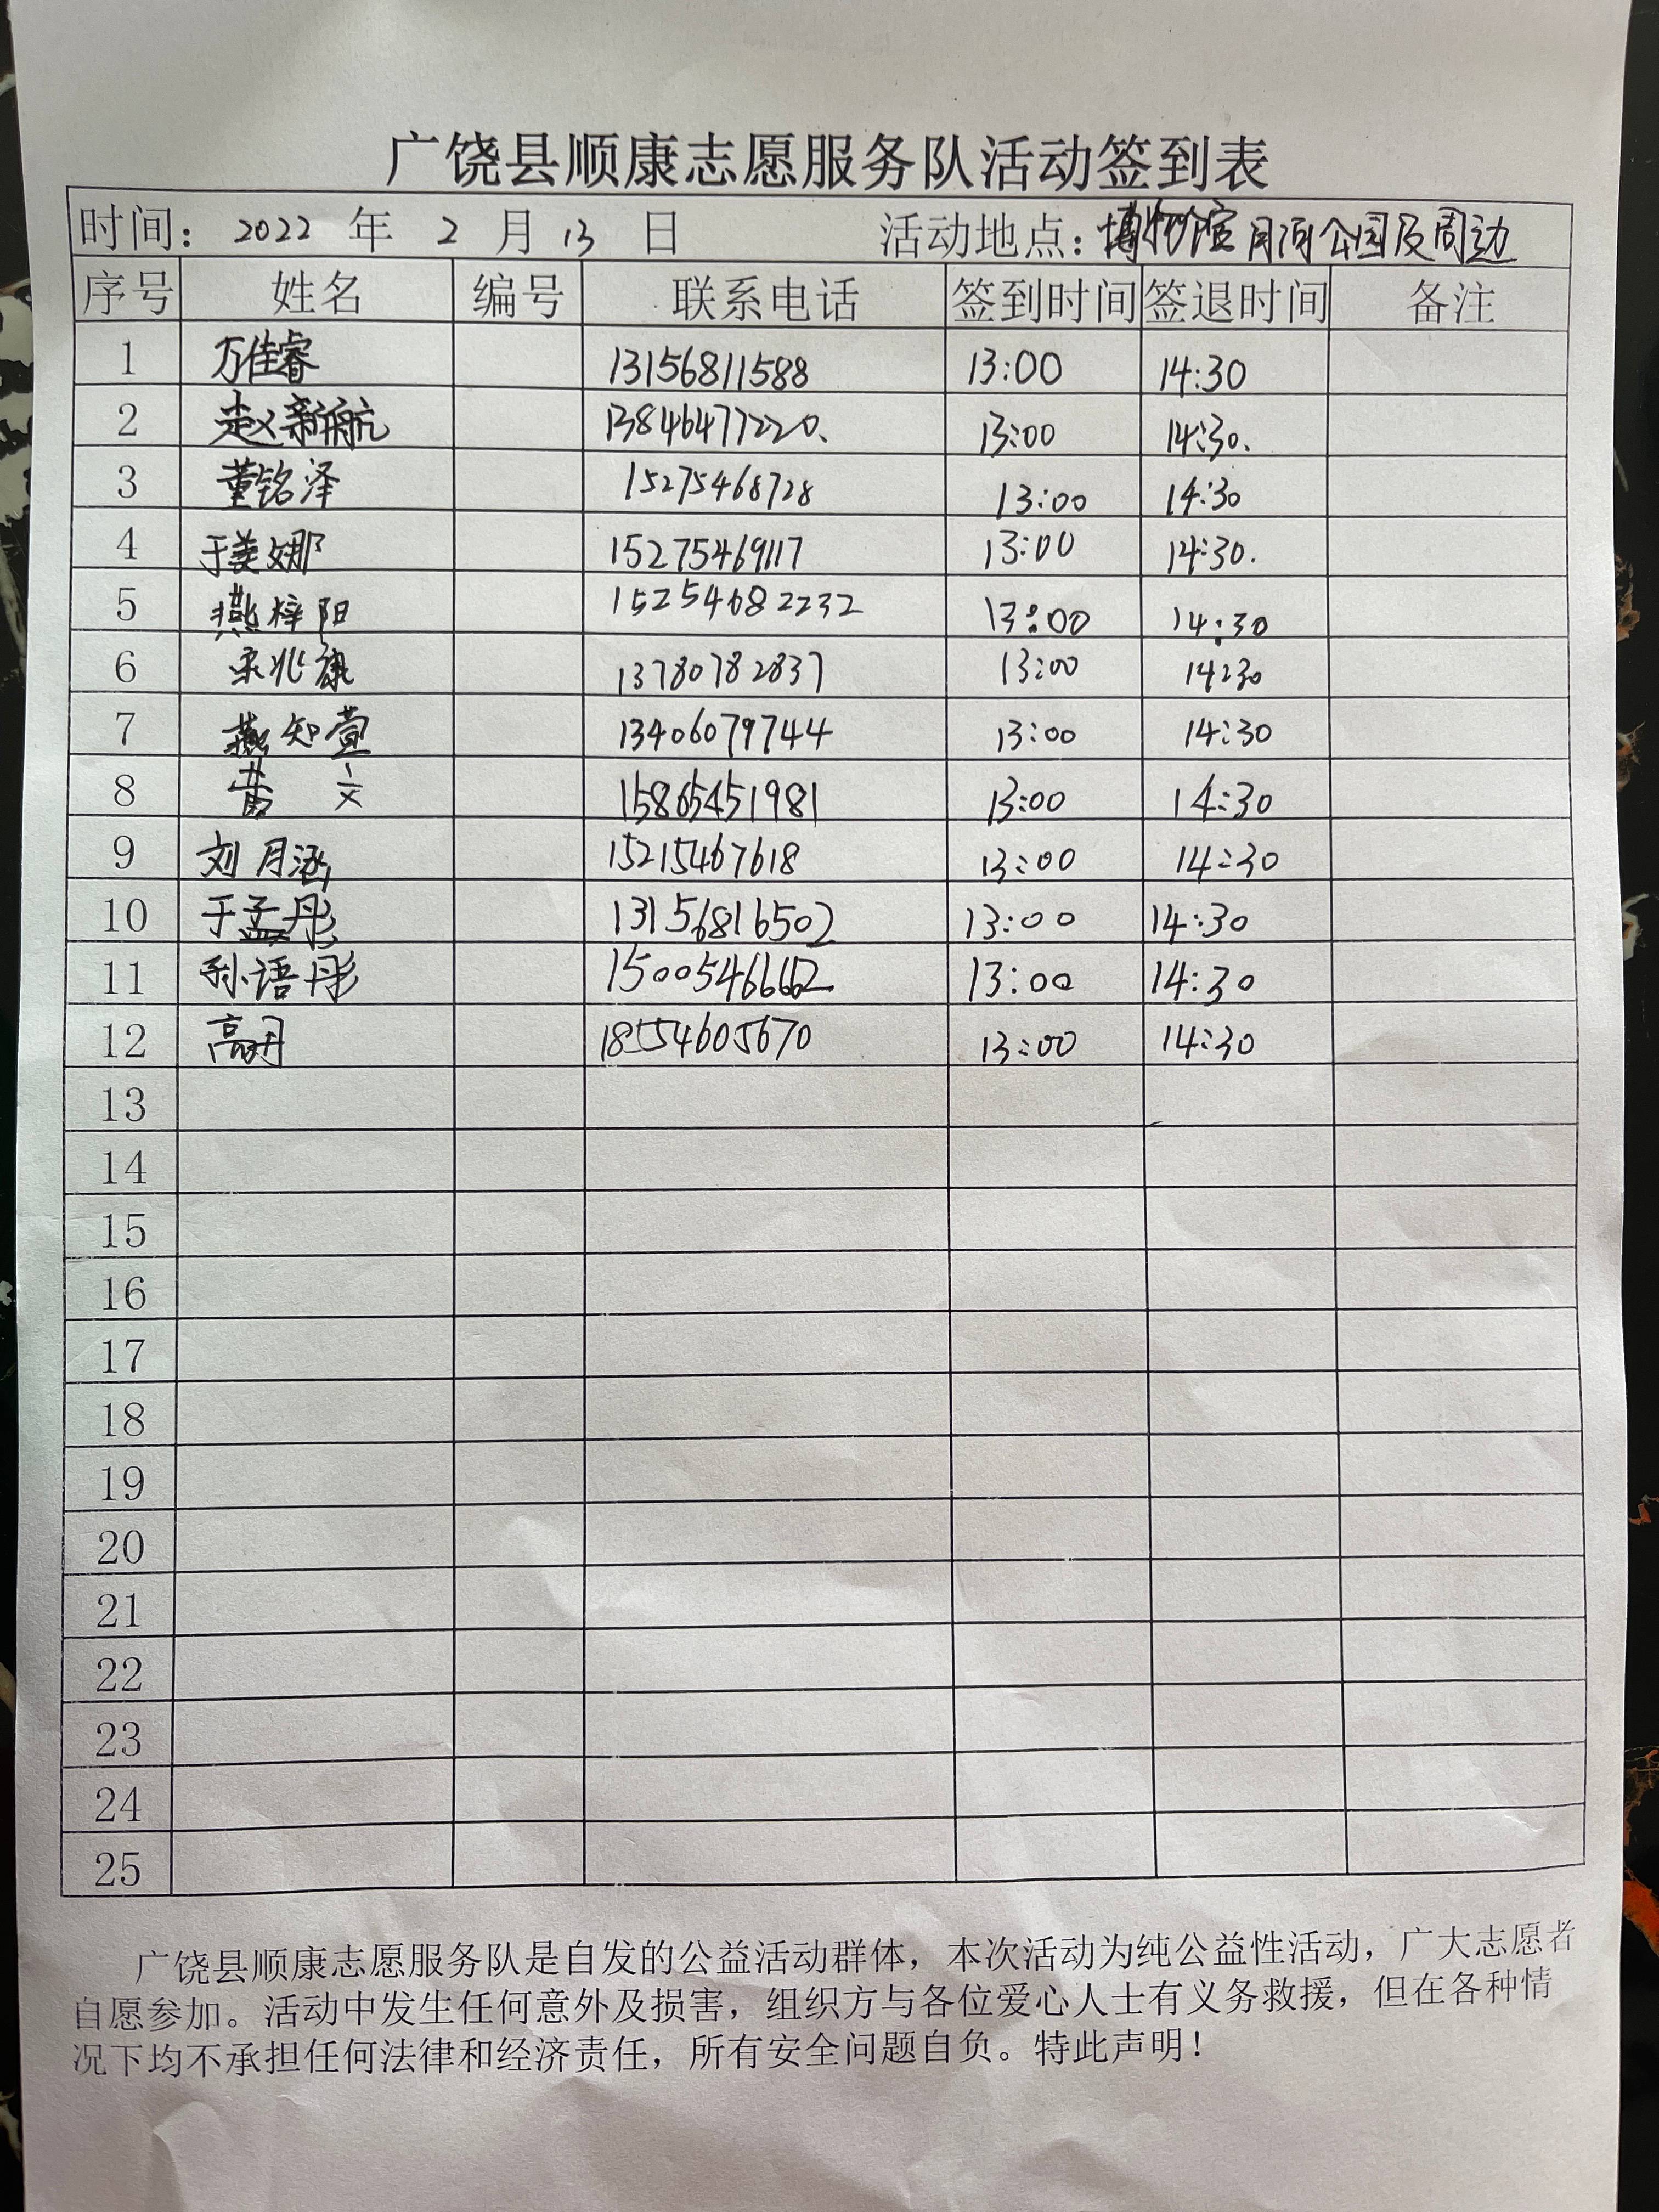 广饶县顺康志愿服务队活动签到表
时间: 2022 年 2 月 13 日 活动地点: 博物馆月河公园及周边
序号 姓名 编号 联系电话 签到时间 签退时间 备注
1 万佳睿 13156811588 13:00 14:30
2 赵新航 13846477220. 13:00 14:30.
3 董铭泽 15275468728 13:00 14:30
4 于美娜 15275469117 13:00 14:30.
5 燕梓阳 152754682232 13:00 14:30
6 宋兆康 13780782837 13:00 14:30
7 燕知萱 13406079744 13:00 14:30
8 文 15865451981 13:00 14:30
9 刘月涵 15215467618 13:00 14:30
10 于孟彤 13156816502 13:00 14:30
11 孙语彤 13:00 14:30
12 高丹 18554605670 13:00 14:30
13
14
15
16
17
18
19
20
21
22
23
24
25
广饶县顺康志愿服务队是自发的公益活动群体，本次活动为纯公益性活动，广大志愿者
自愿参加。活动中发生任何意外及损害，组织方与各位爱心人士有义务救援，但在各种情
况下均不承担任何法律和经济责任，所有安全问题自负。特此声明！